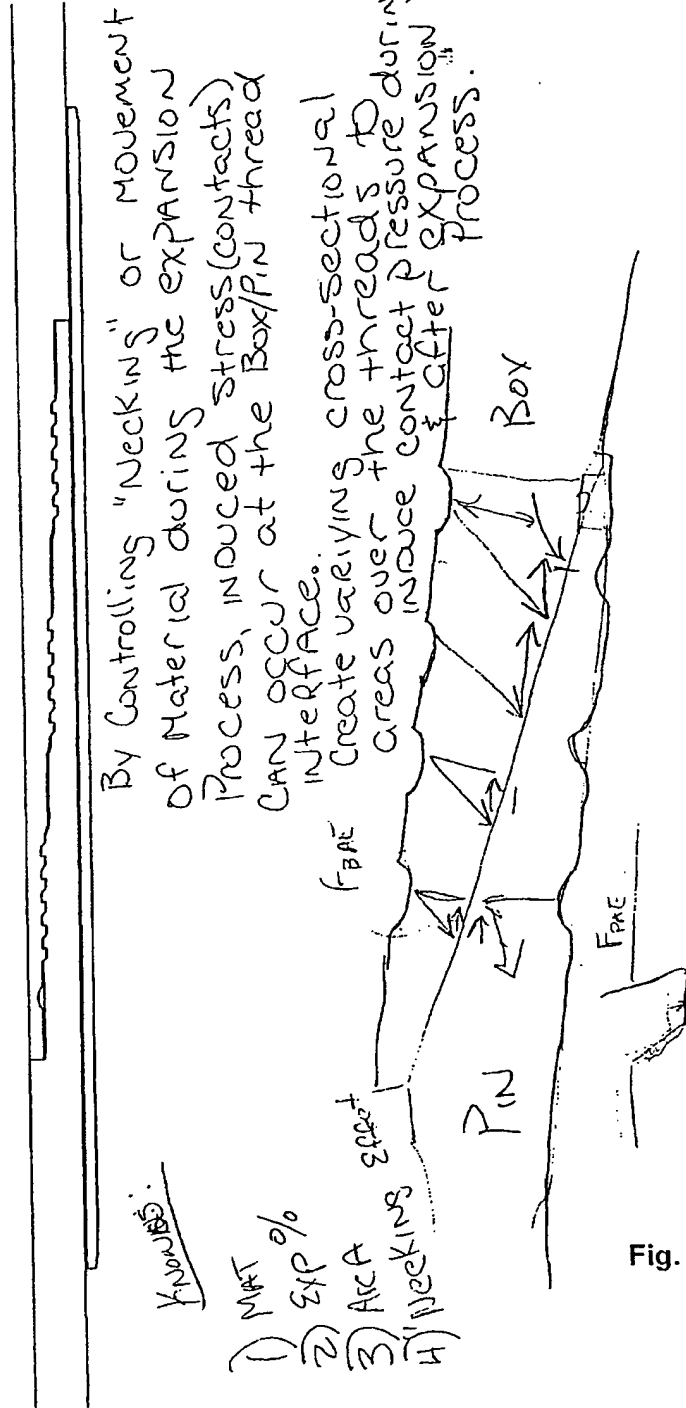 By Controlling "Necking" or Movement
of Material during the expansion
Process, induced stress (contacts)
CAN occur at the Box/Pin thread
interface.
Create variying cross-sectional
areas over the threads to
induce contact pressure durin
& after expansion
process.
Knowns:
1) MAT
2) Exp %
3) Area
4) "Necking Effect
FBAE
Box
PIN
FPAE
Fig.